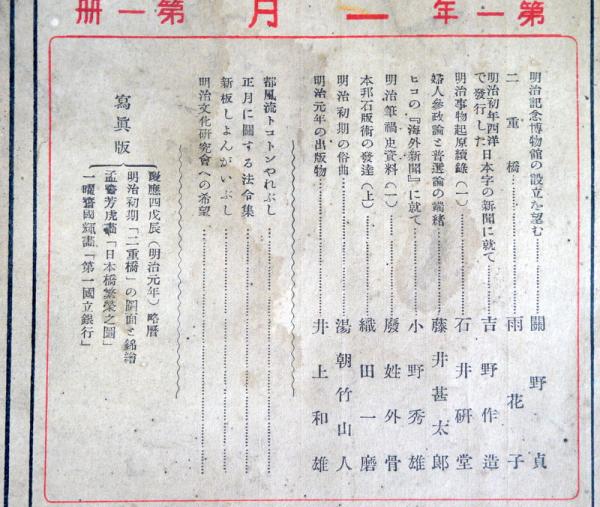 第一年 一月 第一冊
明治記念博物館の設立を望む 關野貞
二重橋 雨花子
明治初年西洋で發行した日本字の新聞に就て 吉野作造
明治事物起原續錄(一) 石井研堂
婦人參政論と普選論の端緖 藤井甚太郎
ヒコの『海外新聞』に就て 小野秀雄
明治筆禍史資料(一) 廢姓外骨
本邦石版術の發達(上) 織田一磨
明治初期の俗曲 湯朝竹山人
明治元年の出版物 井上和雄
都風流トコトンやれぶし
正月に關する法令集
新板しよんがいぶし
明治文化硏究會への希望
寫眞版
慶應四戊辰(明治元年)略曆
明治初期「二重橋」の圖面と銘繪
孟齋芳虎畫「日本橋繁榮之圖」
一曜齋國輝畫「第一國立銀行」